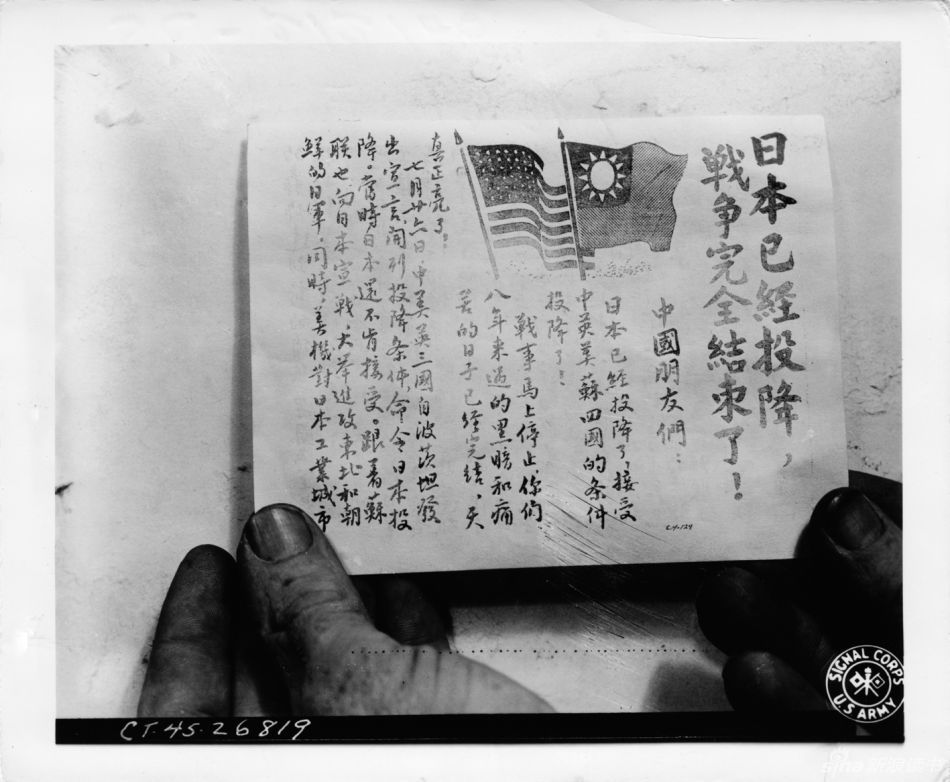 日本已経投降，
戦争完全結束了！
中國朋友們：
日本已経投降了，接受
中英美蘇四國的条件
投降了！
戦事馬上停止，你們
八年来過的黑暗和痛
苦的日子已経完結，天
真正亮了！
七月廿六日，中美英三國自波茨坦發
出宣言，開列投降条件，命令日本投
降。當時日本還不肯接受。跟着蘇
联也向日本宣戦，大举進攻東北和朝
鮮的日軍，同時，美機對日本工業城市
SIGNAL CORPS
U.S ARMY
CT-45-26819
sina 新浪读书